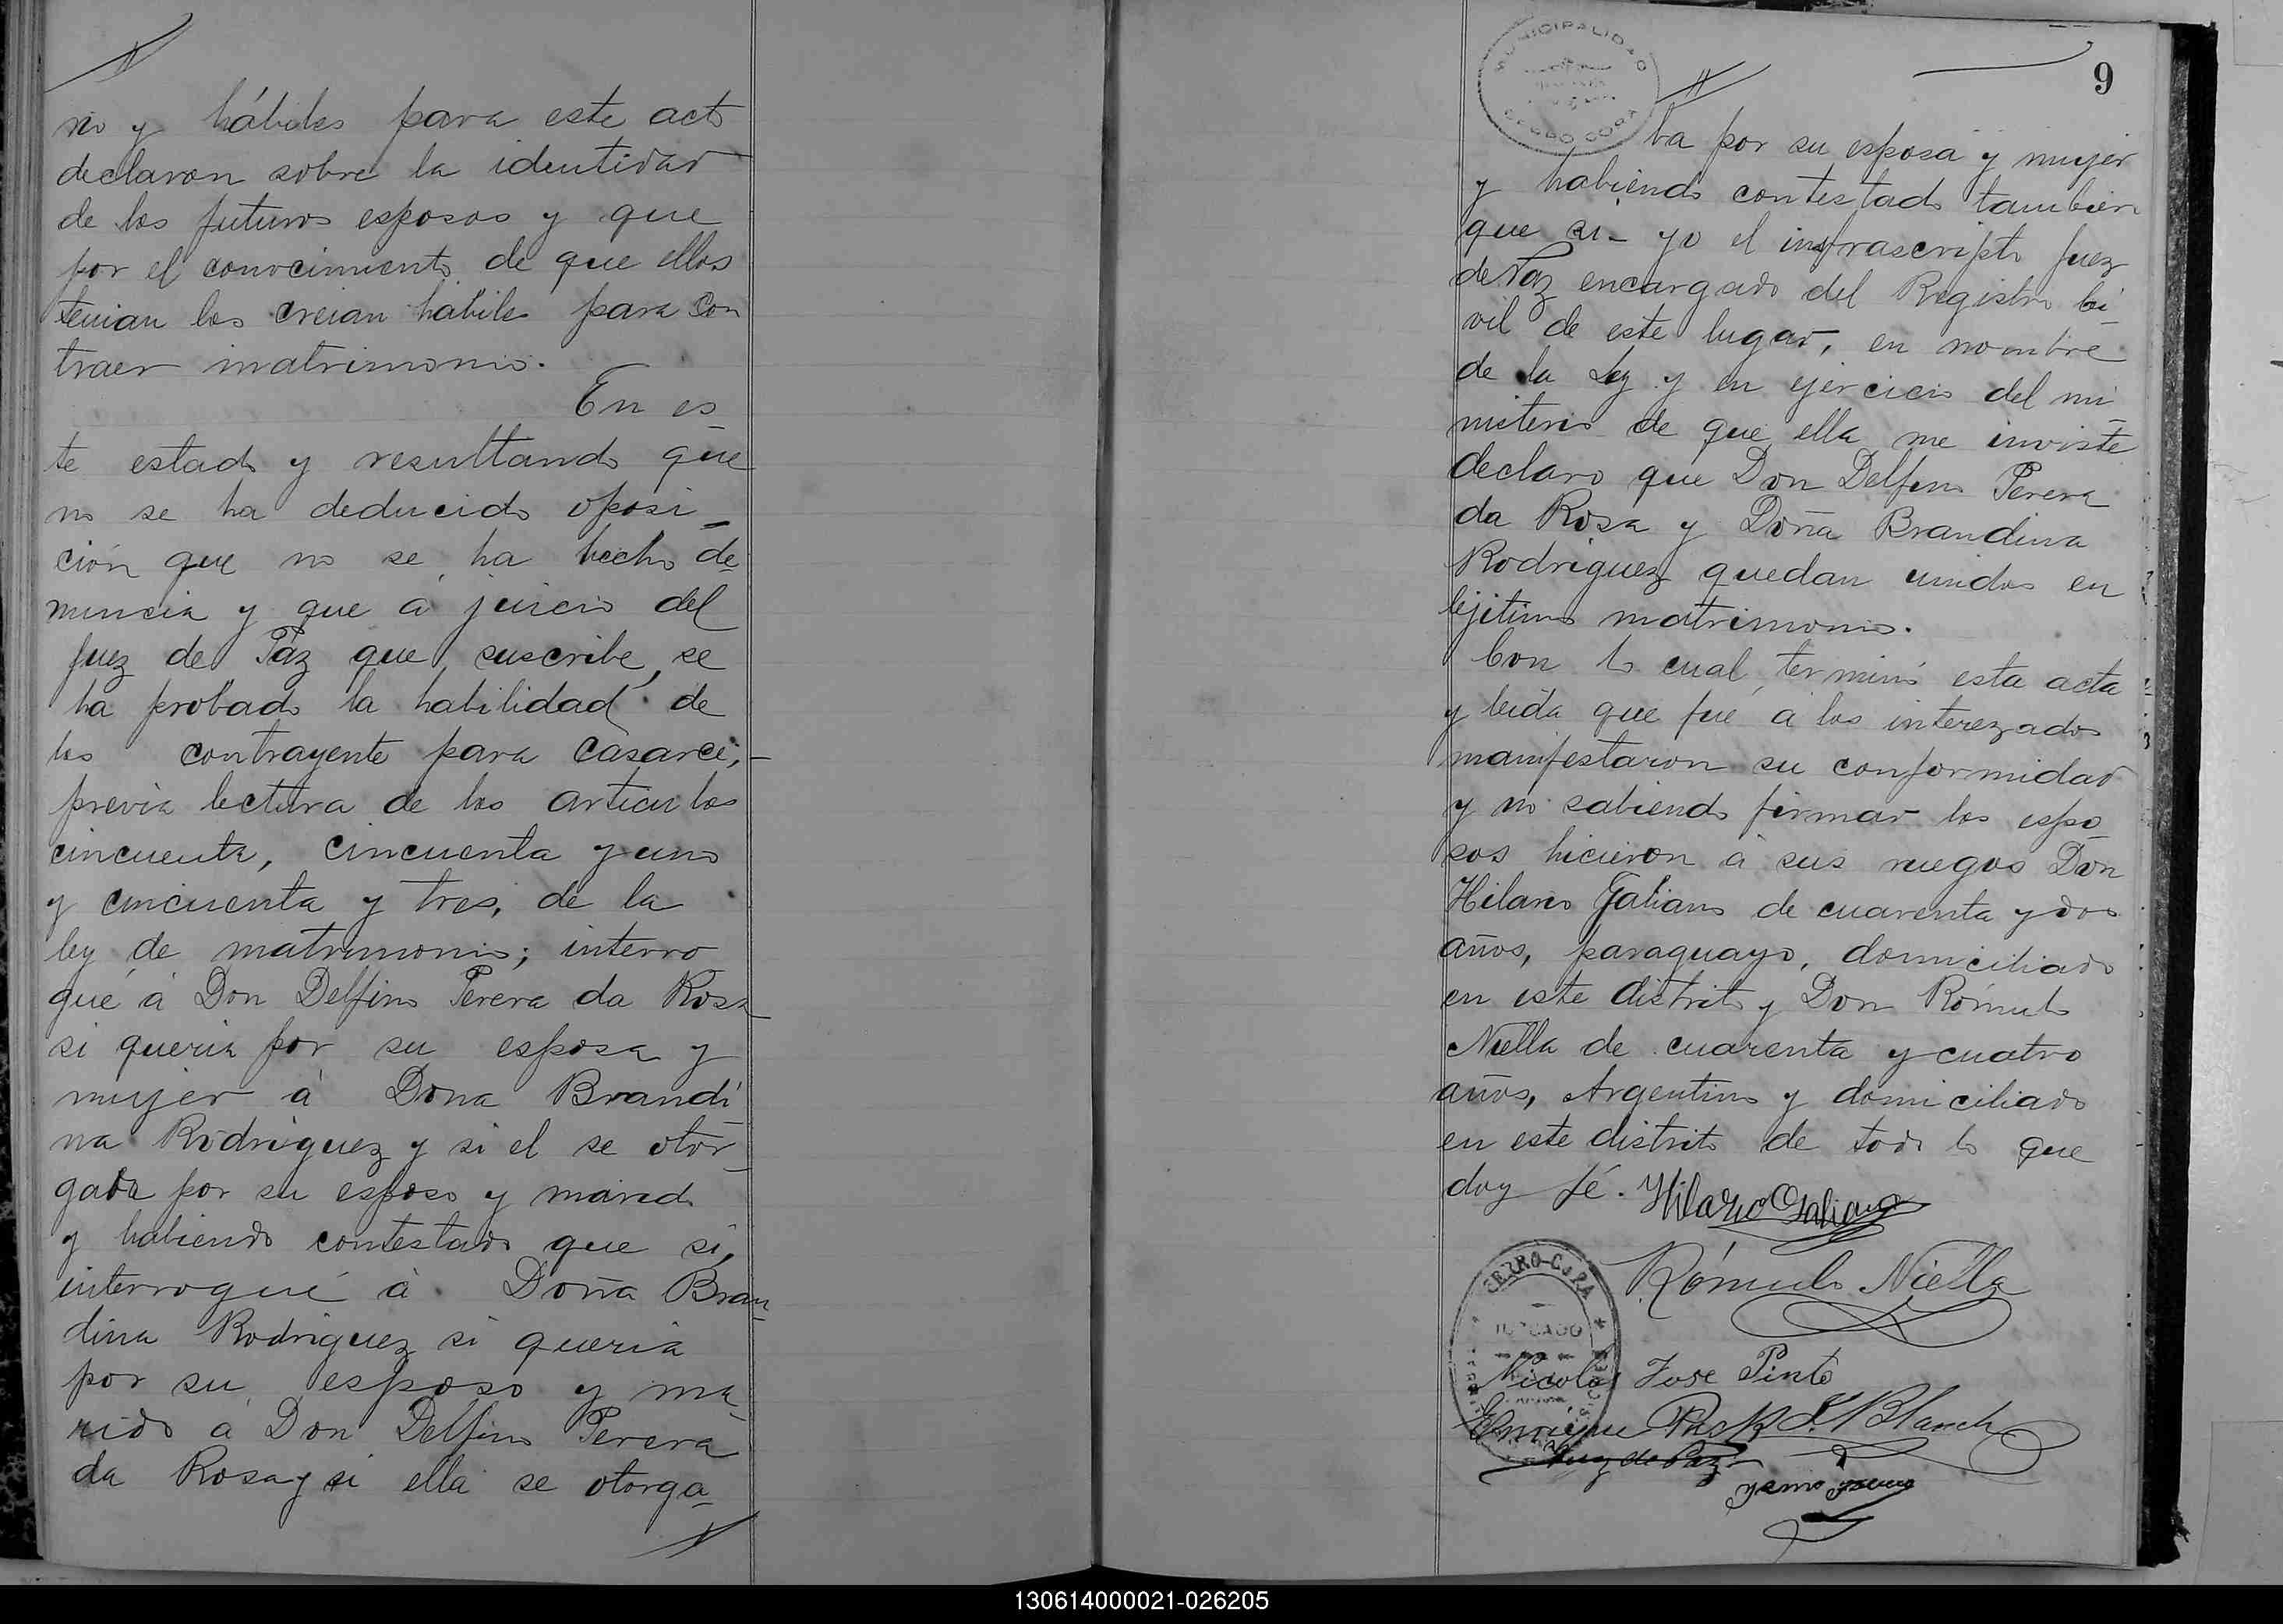 no y hábiles para este acto
declararon sobre la identidad
de los futuros esposos y que
por el conocimiento de que ellos
tenian los creian habiles para con
traer matrimonio.
En es-
te estado y resultando que
no se ha deducido oposi-
ción que no se ha hecho de-
nuncia y que á juicio del
Juez de Páz que suscribe, se
ha probado la habilidad de
los contrayente para casarce,-
previa lectura de los articulos
cincuenta, cincuenta y uno
y cincuenta y tres, de la
ley de matrimonio; interro
gué á Don Delfino Perera da Rosa
si queria por su esposa y
mujer á Dona Brandi-
na Rodriguez y si el se otor-
gaba por su esposo y marido
y habiendo contestado que si,
interrogué á Doña Bran-
dina Rodriguez si queria
por su esposo y ma-
rido á Don Delfino Perera
da Rosa y si ella se otorga-
MUNICIPALIDAD
CERRO CORA
9
ba por su esposa y mujer
y habiendo contestado tambien
que si - yo el infrascripto Juez
de Paz encargado del Registro Ci-
vil de este lugar, en nombre
de la Ley y en ejercicio del mi-
nisterio de que ella me inviste
declaro que Don Delfino Perera
da Rosa y Doña Brandina
Rodriguez quedan unidos en
lejitimo matrimonio.
Con lo cual terminó esta acta
y leida que fué á los interezados
manifestaron su conformidad
y no sabiendo firmar los espo-
sos hicieron á sus ruegos Don
Hilario Galiano de cuarenta y dos
años, paraguayo, domiciliado
en este distrito y Don Rómulo
Niella de cuarenta y cuatro
años, Argentino y domiciliado
en este distrito de todo lo que
doy fé. Hilario Galiano
Rómulo Niella
CERRO-CORA
JUZGADO
Nicolas Jose Pinto
Enrique S. Blanch
Juez de Paz
130614000021-026205